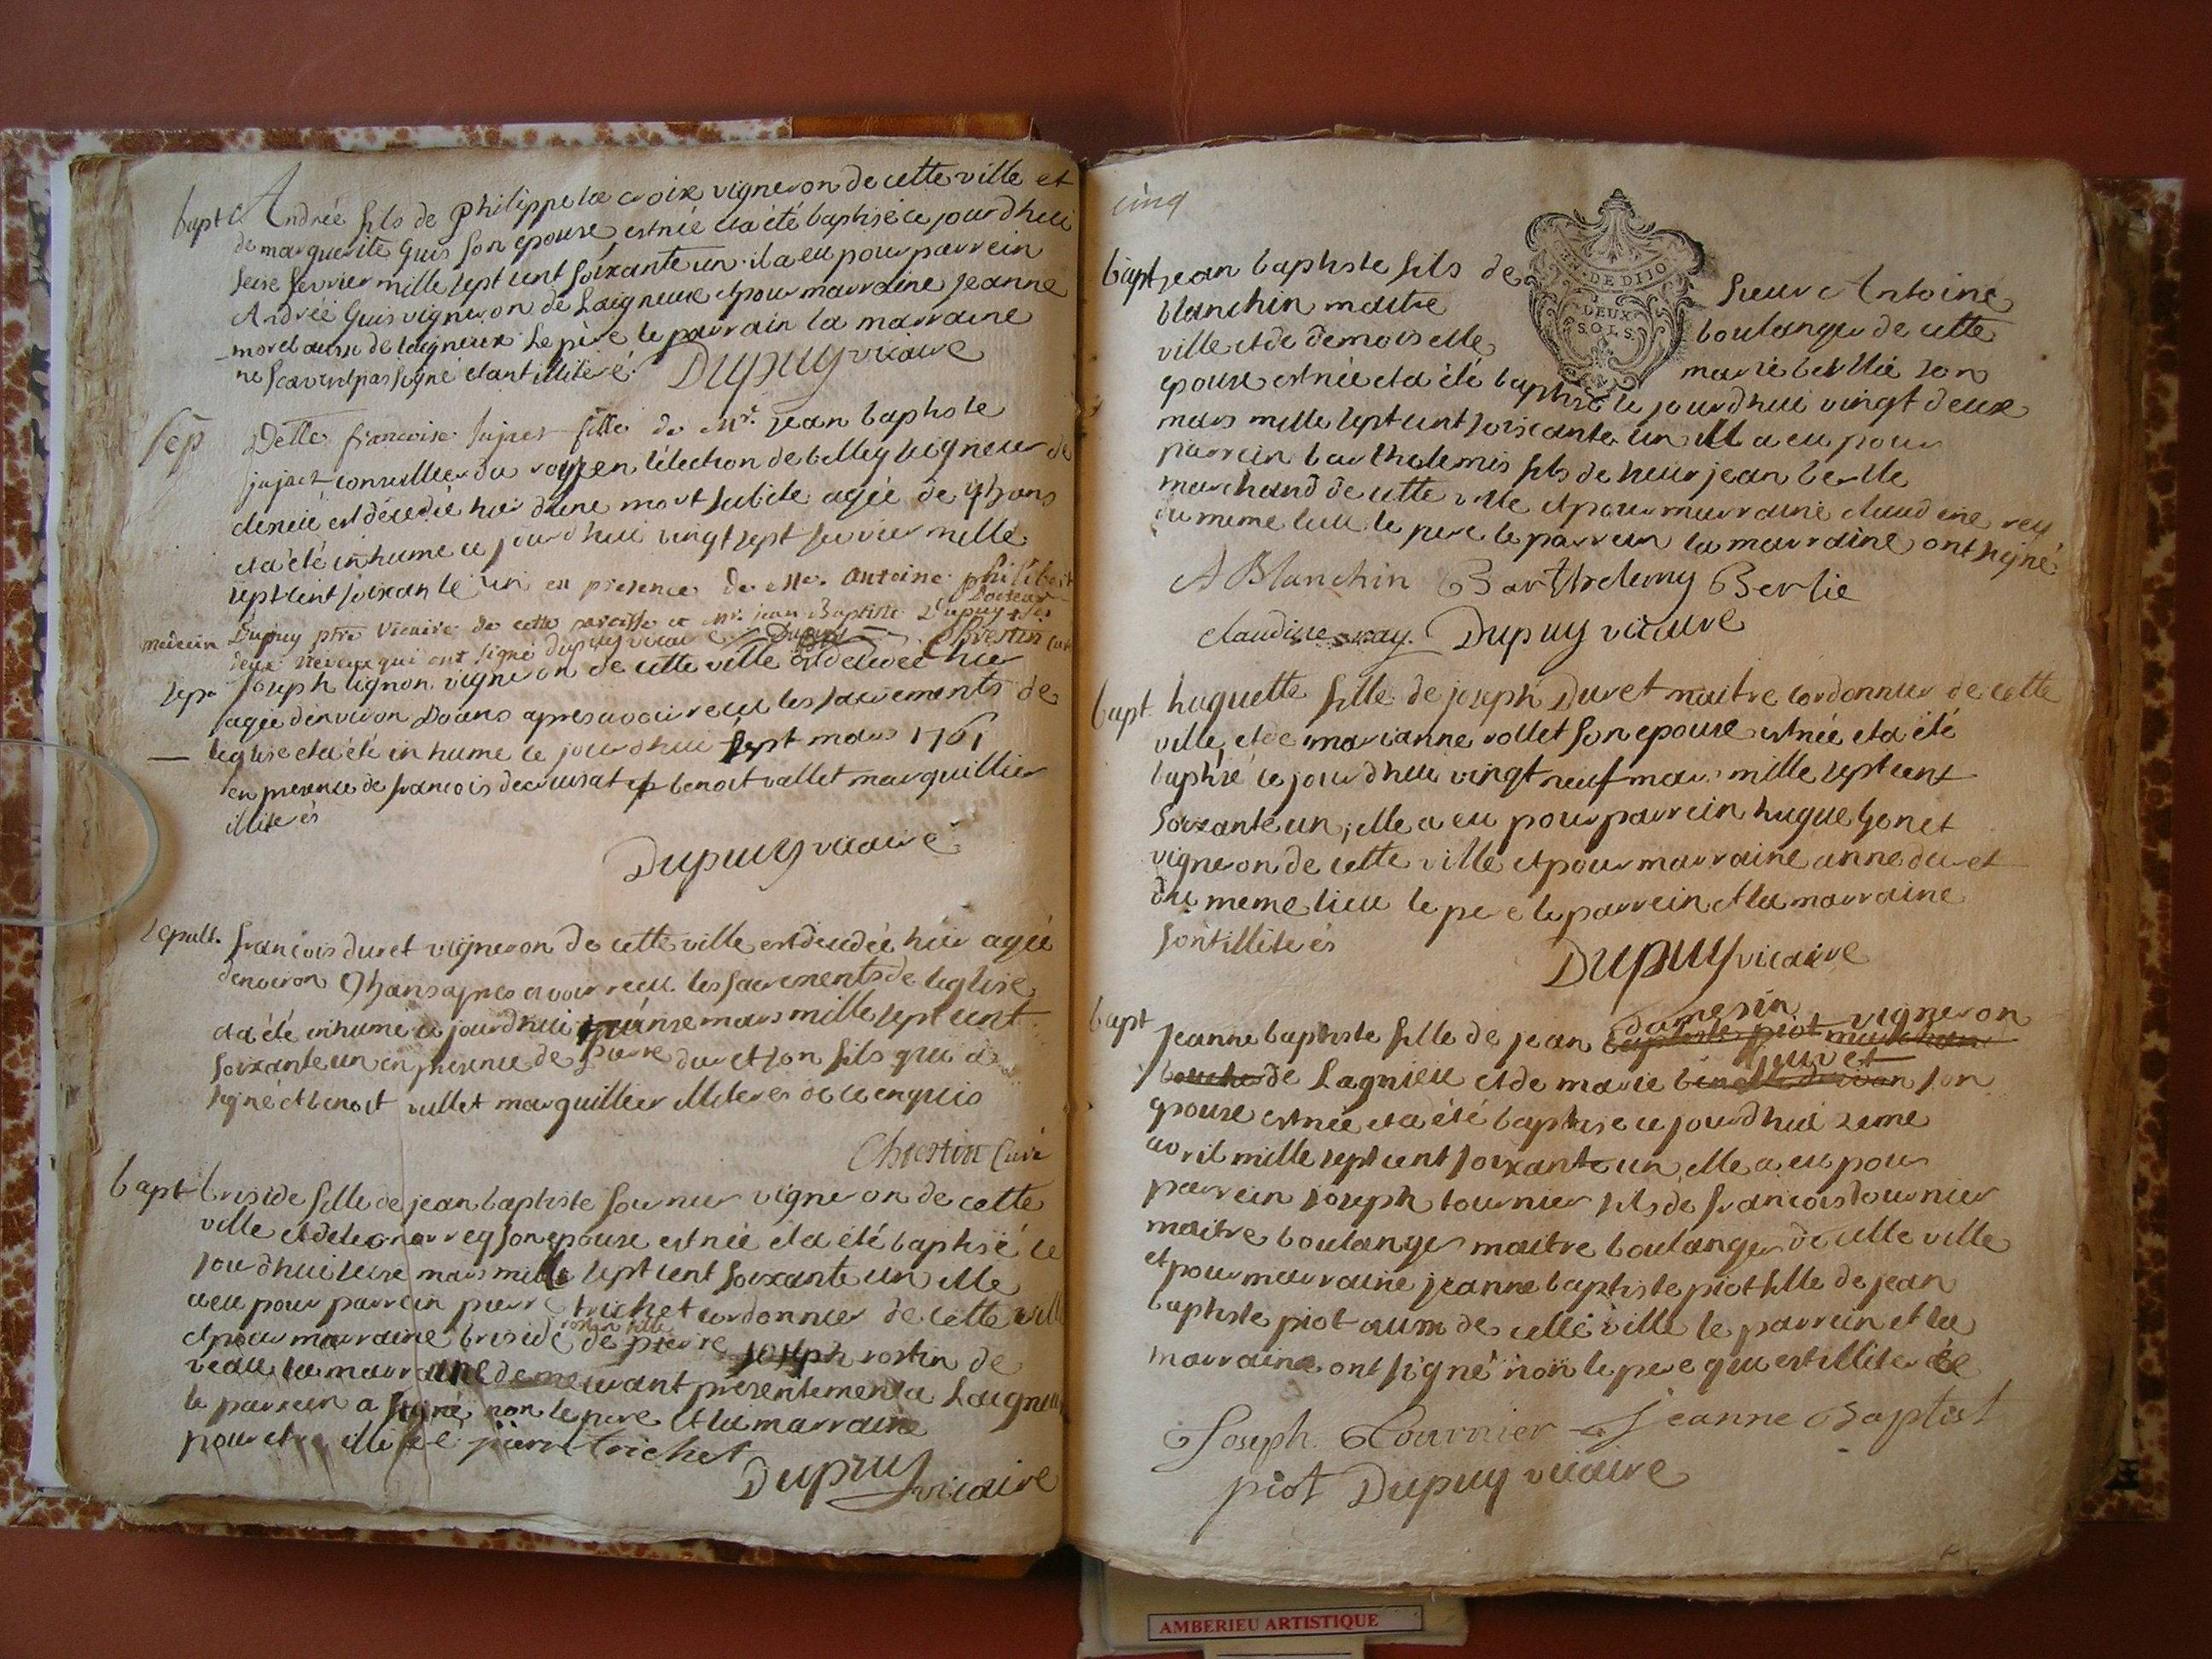 bapt Andrée fils de philippe la croix vigneron de cette ville et
de marguerite Guis son epouse est née et a été baptisé ce jourd'hui
seise fevrier mille sept cent soixante un. il a eu pour parrein
Andrée Guis vigneron de Laigneux et pour marraine jeanne
morel aussi de laigneux. Le père le parrain la marraine
ne scavent pas signé etant illiteré. Dupuy vicaire
sep Delle francoise jujat fille de Mr. jean baptiste
jujat conseiller du roy en l'élection de belley seigneur de
est décedée hier d'une mort subite agée de ans
et a été inhume ce jourd'hui vingt sept fevrier mille
sept cent soixante un en presence de Mr. Antoine philibert
Dupuy ptre Vicaire de cette paroisse et Mr. jean Baptiste Dupuy Docteur
medecin deux neveux qui ont signé dupuy vicaire Dupuy Chrestin curé
sep joseph lignon vigneron de cette ville est decedé hier
agée d'environ ans apres avoir recu les sacrements de
leglise et a été inhume ce jourd'hui sept mars 1761
en presence de francois decrusat et benoit vallet marguillier
illiterés
Dupuy vicaire
sepult. françois duret vigneron de cette ville est decedée hier agée
denviron ans apres avoir recu les sacrements de leglise
et a été inhumé ce jourd'hui quinse mars mille sept cent
soixante un en presence de pierre duret son fils qui a
signé et benoit vallet marguillier illiterés de ce enquis
Chrestin Curé
bapt briside fille de jean baptiste fournier vigneron de cette
ville et de leonar rey son epouse est née et a été baptisé ce
jourd'hui seise mars mille sept cent soixante un elle
a eu pour parrein pierre trichet cordonnier de cette ville
et pour marraine briside rostin fille de pierre joseph rostin de
veau la marraine demeurant presentement a Laignieu
le parrein a signé non le pere et la marraine
pour etre illiteré pierre trichet
Dupuy vicaire
cinq
EN. DE DIJO
DEUX
SOLS
bapt jean baptiste fils de sieur Antoine
blanchin maitre boulanger de cette
ville et de demoiselle marie berllie son
epouse est née et a été baptisé ce jourd'hui vingt deux
mars mille sept cent soixante un il a eu pour
parrein barthelemis fils de sieur jean berlie
marchand de cette ville et pour marraine claudine rey
du meme lieu le pere le parrein la marraine ont signé
A Blanchin Barthelemy Berlie
claudine ray. Dupuy vicaire
bapt. huguette fille de joseph Duret maitre cordonnier de cette
ville et de marianne vollet son epouse est née et a été
baptisé ce jourd'hui vingt neuf mars mille sept cent
soixante un, elle a eu pour parrein hugue Genet
vigneron de cette ville et pour marraine anne duret
du meme lieu le pere le parrein et la marraine
sont illiterés
Dupuy vicaire
bapt jeanne baptiste fille de jean damesin vigneron baptiste piot marchand
boucher de Lagnieu et de marie juvet son
epouse est née et a été baptisé ce jourd'hui 2eme
avril mille sept cent soixante un elle a eu pour
parrein joseph tournier fils de francois tournier
maitre boulanger maitre boulanger de cette ville
et pour marraine jeanne baptiste piot fille de jean
baptiste piot aussi de cette ville le parrein et la
marraine ont signé non le pere qui est illiteré
Joseph Tournier Jeanne Baptist
piot Dupuy vicaire
AMBERIEU ARTISTIQUE